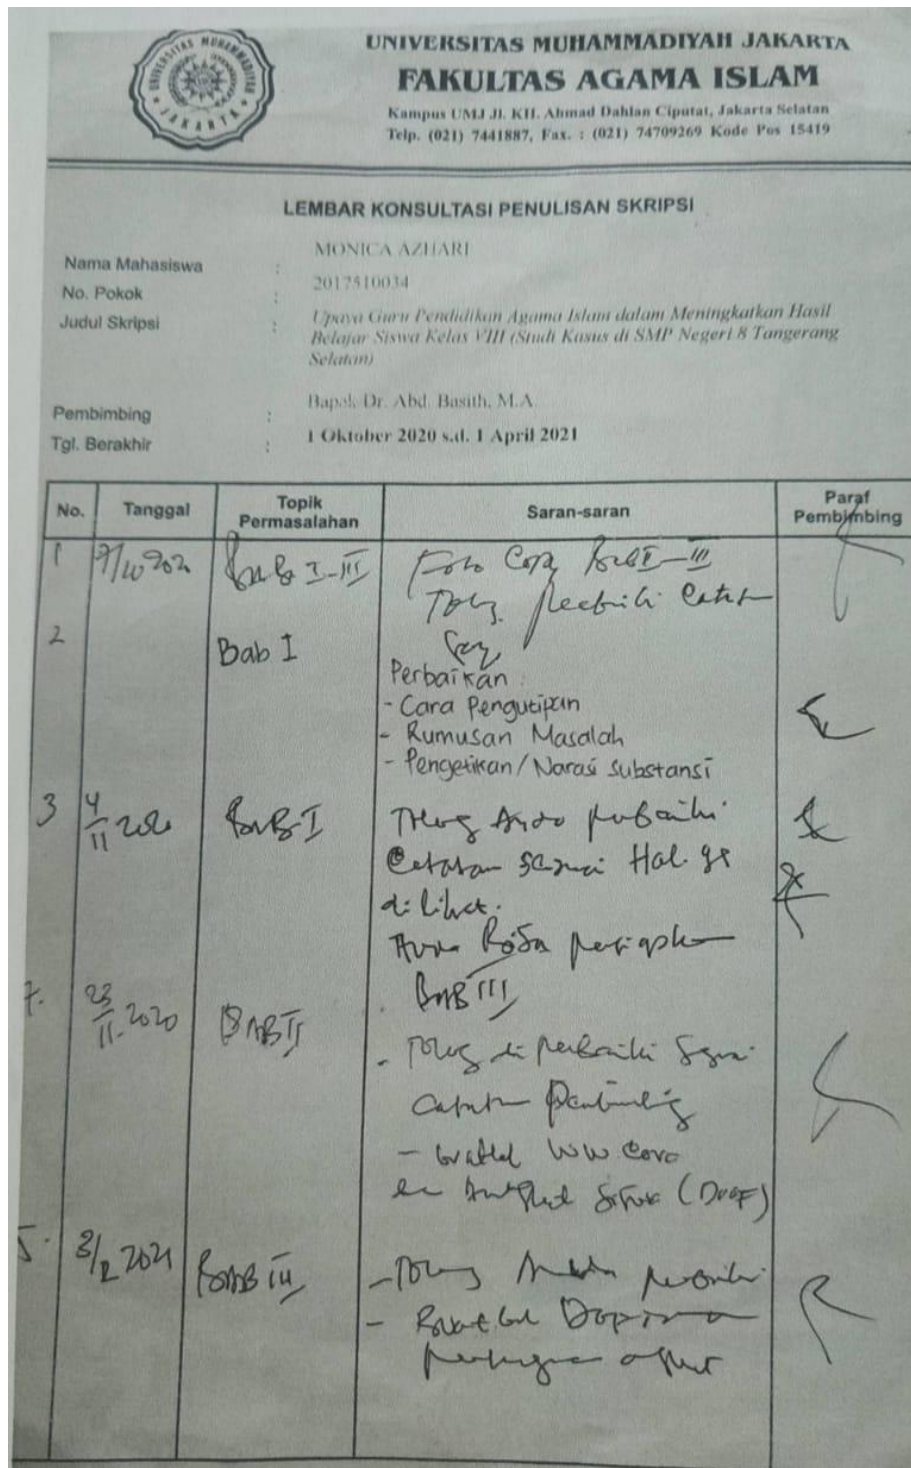 UNIVERSITAS MUHAMMADIYAH JAKARTA
UNIVERSITAS MUHAMMADIYAH JAKARTA
FAKULTAS AGAMA ISLAM
Kampus UMJ Jl. KH. Ahmad Dahlan Ciputat, Jakarta Selatan
Telp. (021) 7441887, Fax. : (021) 74709269 Kode Pos 15419
LEMBAR KONSULTASI PENULISAN SKRIPSI
Nama Mahasiswa : MONICA AZHARI
No. Pokok : 2017510034
Judul Skripsi : Upaya Guru Pendidikan Agama Islam dalam Meningkatkan Hasil
Belajar Siswa Kelas VIII (Studi Kasus di SMP Negeri 8 Tangerang
Selatan)
Pembimbing : Bapak Dr. Abd. Basith, M.A
Tgl. Berakhir : 1 Oktober 2020 s.d. 1 April 2021
No. Tanggal Topik Permasalahan Saran-saran Paraf Pembimbing
1 BAB I-III Foto Copy BAB I-III
2 Bab I
Perbaikan :
- Cara Pengutipan
- Rumusan Masalah
- Pengetikan/Narasi Substansi
3 4/11 2020 BAB I Tolong Anda perbaiki
Catatan sesuai Hal. yg
di lihat.
Anda Bisa persiapkan
BAB III
23/11.2020 BAB II
- Tolong di perbaiki sesuai
Catatan Pembimbing
5. BAB III - Tolong Anda perbaiki
-